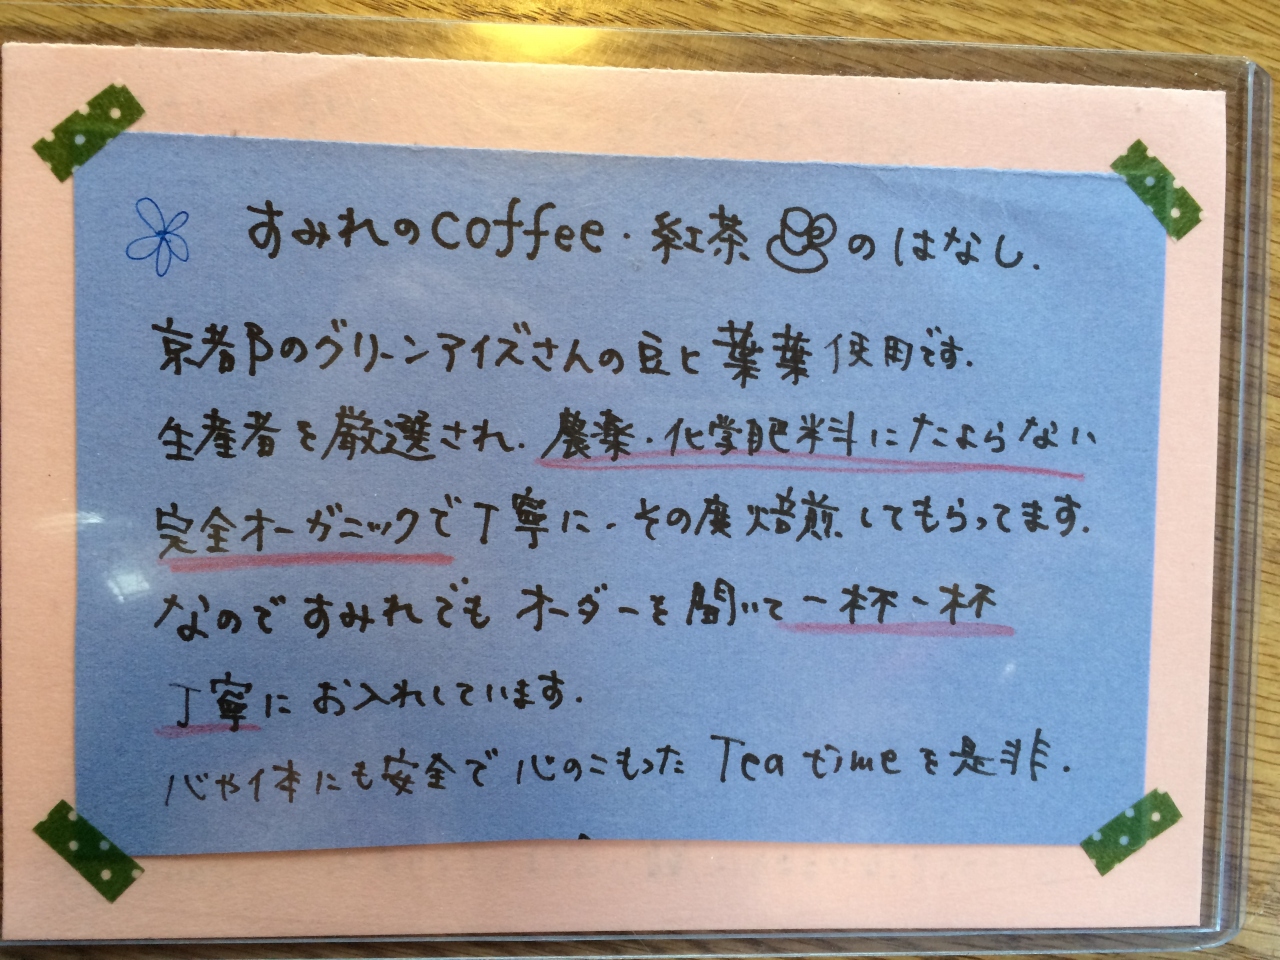 すみれのcoffee・紅茶のはなし.
京都のグリーンアイズさんの豆と葉葉使用です.
生産者を厳選され.農薬・化学肥料にたよらない
完全オーガニックで丁寧に.その度焙煎してもらってます.
なのですみれでもオーダーを聞いて一杯一杯
丁寧にお入れしています.
心や体にも安全で心のこもったTea timeを是非.